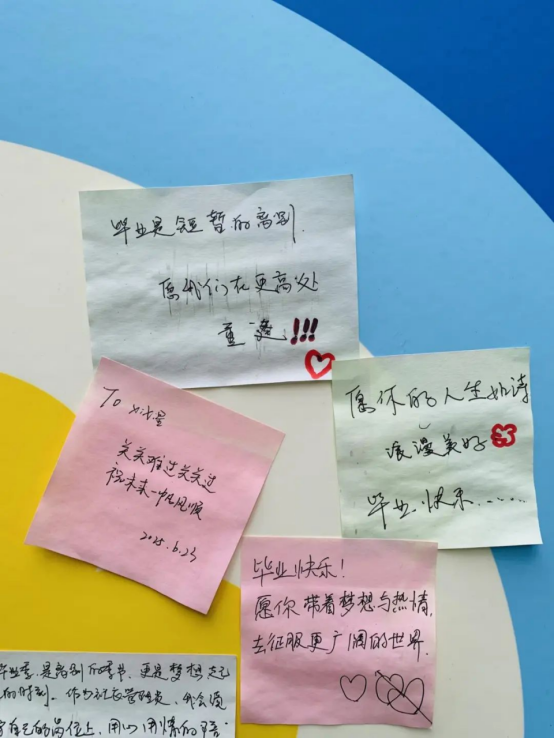 毕业是短暂的离别.
愿我们在更高处
重逢!!!
To
关关难过关关过
祝未来一帆风顺
2025.6.23
愿你的人生如诗
浪漫美好
毕业快乐......
毕业快乐!
愿你带着梦想与热情,
去征服更广阔的世界.
毕业季,是离别的季节,更是梦想
的时刻.作为社
自己的岗位上,用